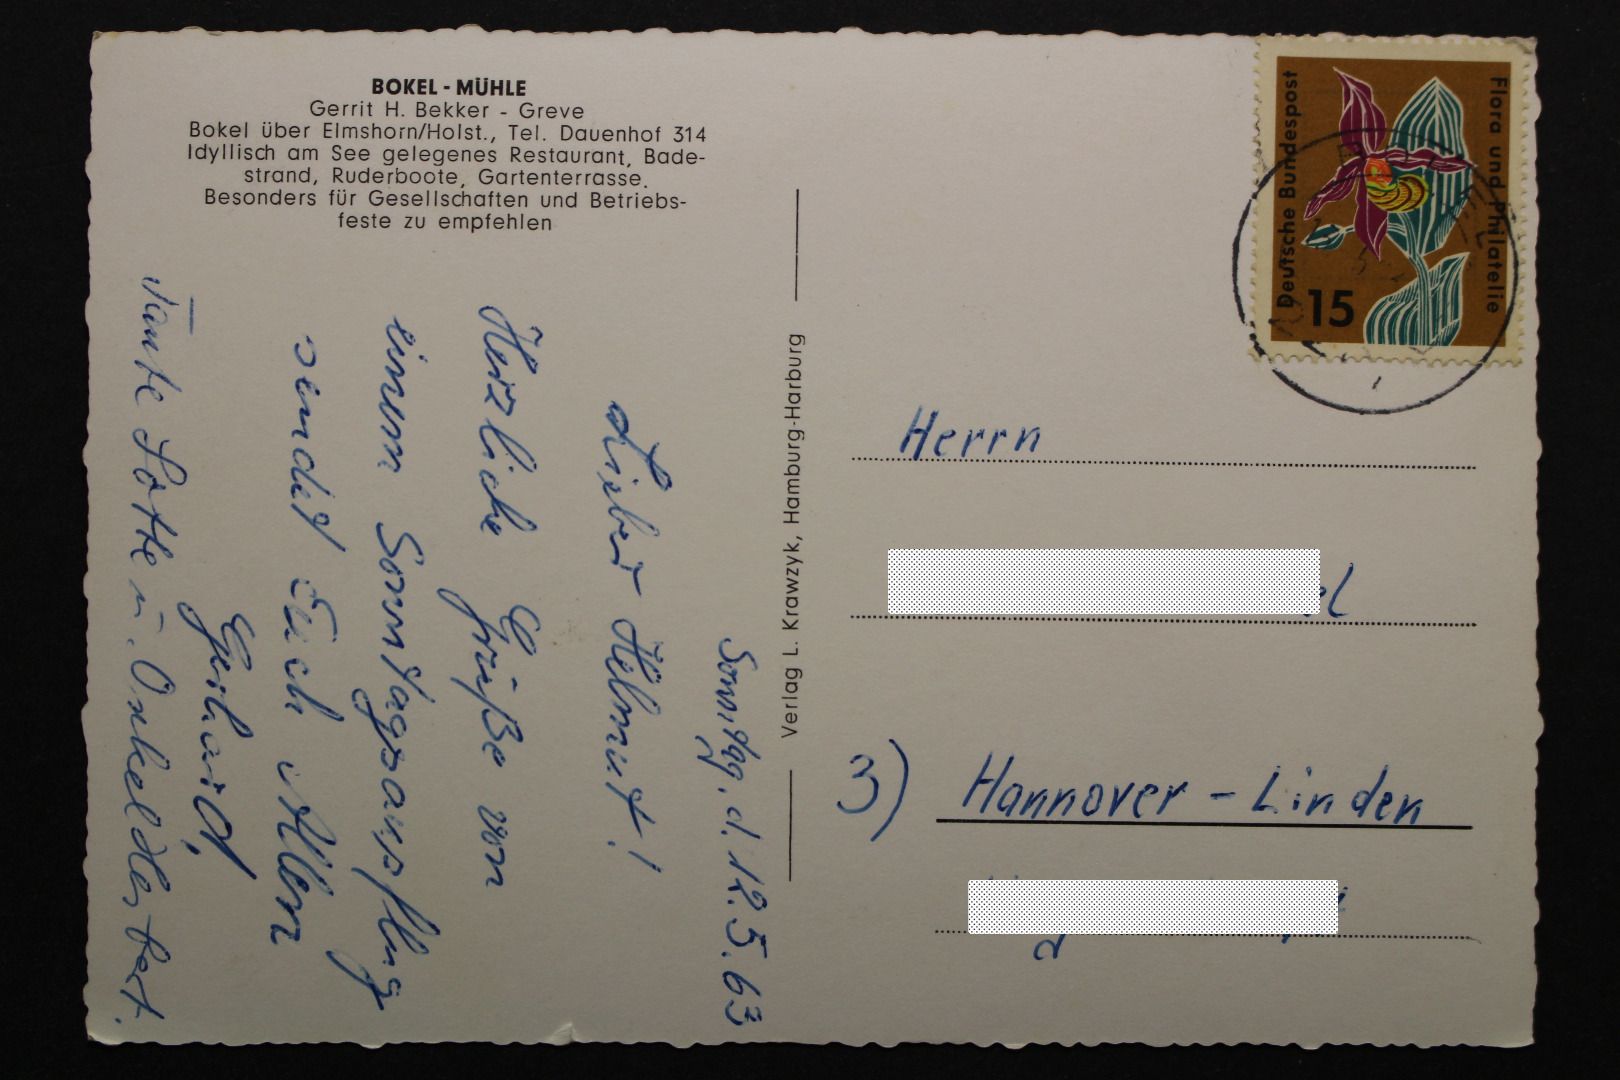 BOKEL - MÜHLE
Gerrit H. Bekker - Greve
Bokel über Elmshorn/Holst., Tel. Dauenhof 314
Idyllisch am See gelegenes Restaurant, Bade-
strand, Ruderboote, Gartenterrasse.
Besonders für Gesellschaften und Betriebs-
feste zu empfehlen
Sonntag, d. 12.5.63
Lieber Helmut!
Herzliche Grüße von
einem Sonntagsausflug
sendet Euch Allen
Gerhard,
Tante Lotte u. Onkel Herbert.
Verlag L. Krawzyk, Hamburg-Harburg
Deutsche Bundespost
Flora und Philatelie
15
Herrn
el
3) Hannover - Linden